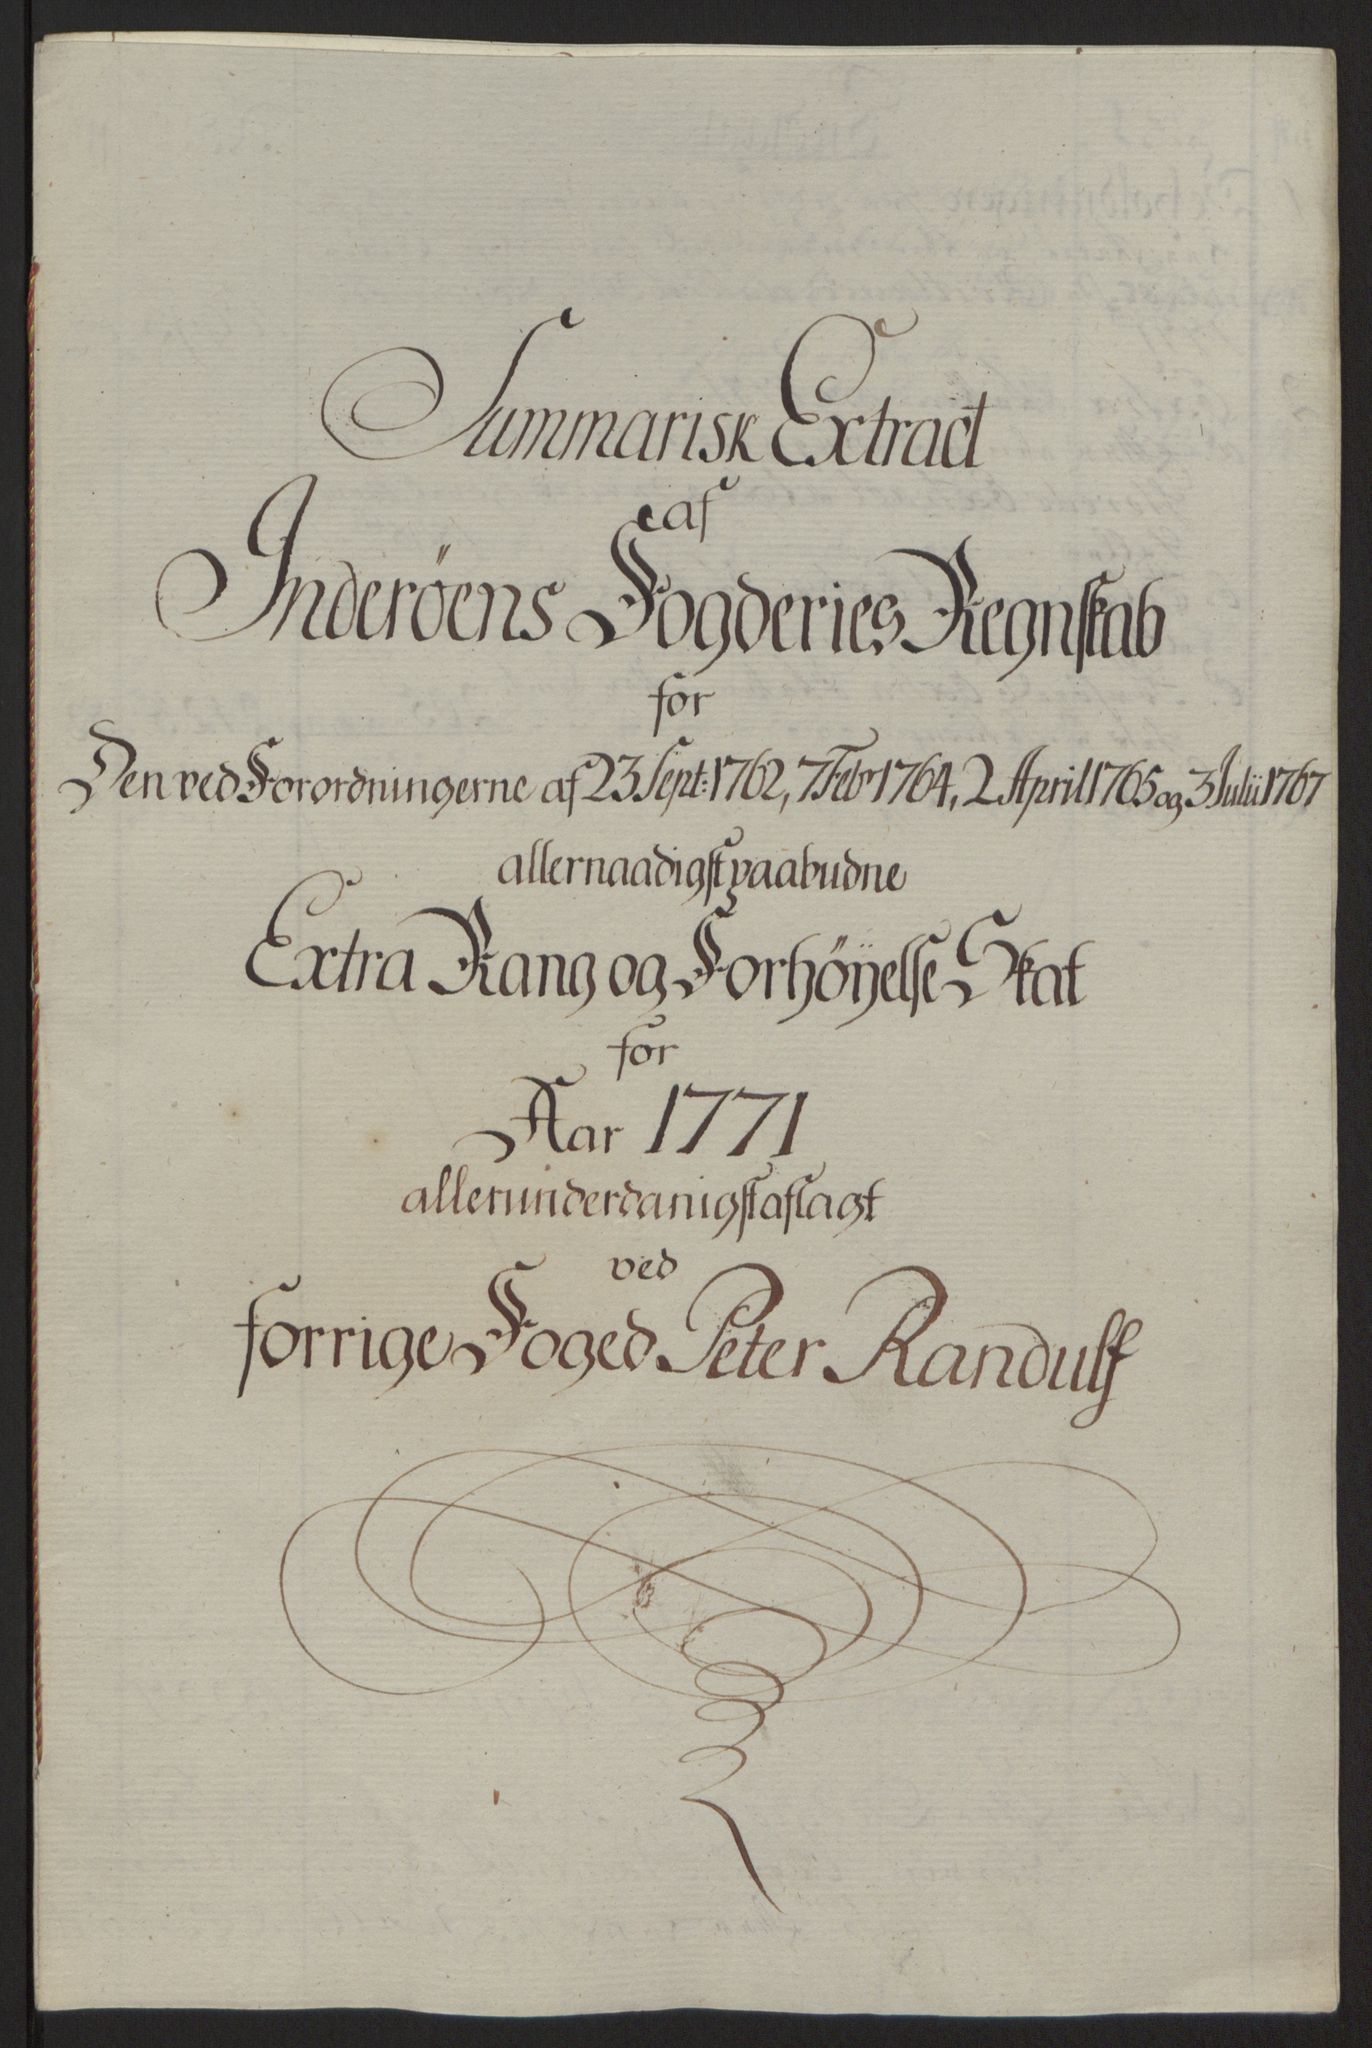 Summarisk Extract
af
Inderöens Fogderies Regnskab
for
Den ved Forordningerne af 23 Sept: 1762, 7 Febr 1764, 2 April 1765 og 3 Julii 1767
allernaadigst paabudne
Extra Rang og Forhöyelse Skat
for
Aar 1771
allerunderdanigst aflagt
ved
forrige Foged Peter Randulf